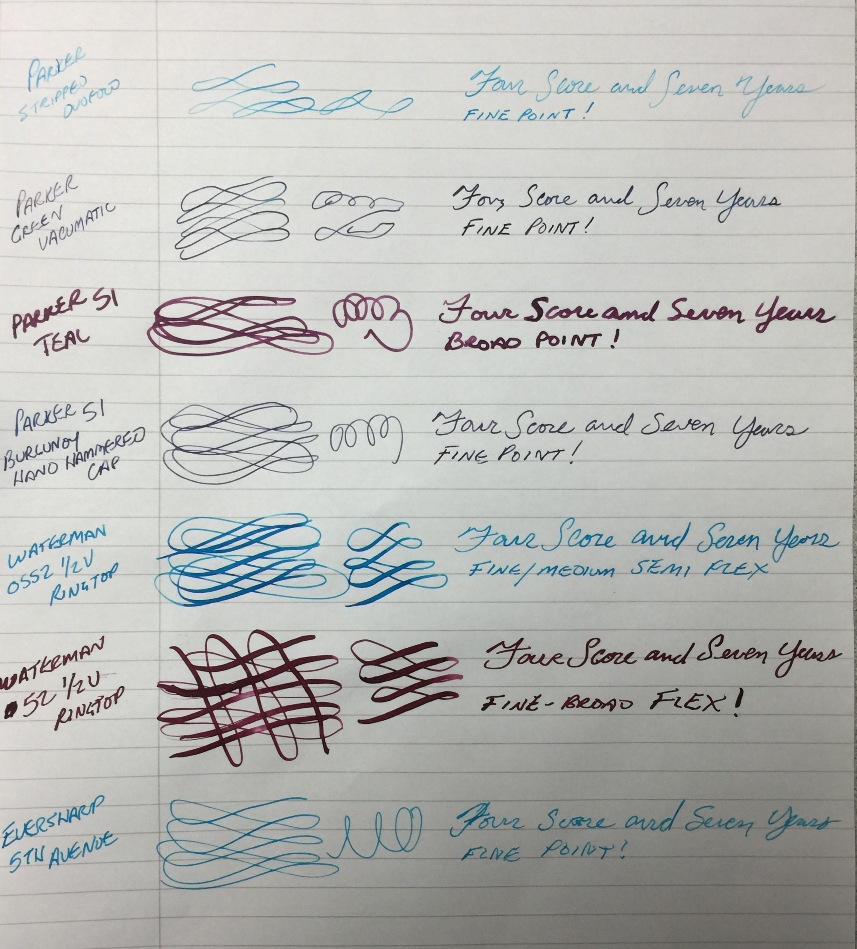 PARKER
STRIPPED
DUOFOLD
Four Score and Seven Years
FINE POINT!
PARKER
GREEN
VACUMATIC
Four Score and Seven Years
FINE POINT!
PARKER 51
TEAL
Four Score and Seven Years
BROAD POINT!
PARKER 51
BURGUNDY
HAND HAMMERED
CAP
Four Score and Seven Years
FINE POINT!
WATERMAN
0552 1/2V
RINGTOP
Four Score and Seven Years
FINE/MEDIUM SEMI FLEX
WATERMAN
52 1/2V
RINGTOP
Four Score and Seven Years
FINE-BROAD FLEX!
EVERSHARP
5TH AVENUE
Four Score and Seven Years
FINE POINT!